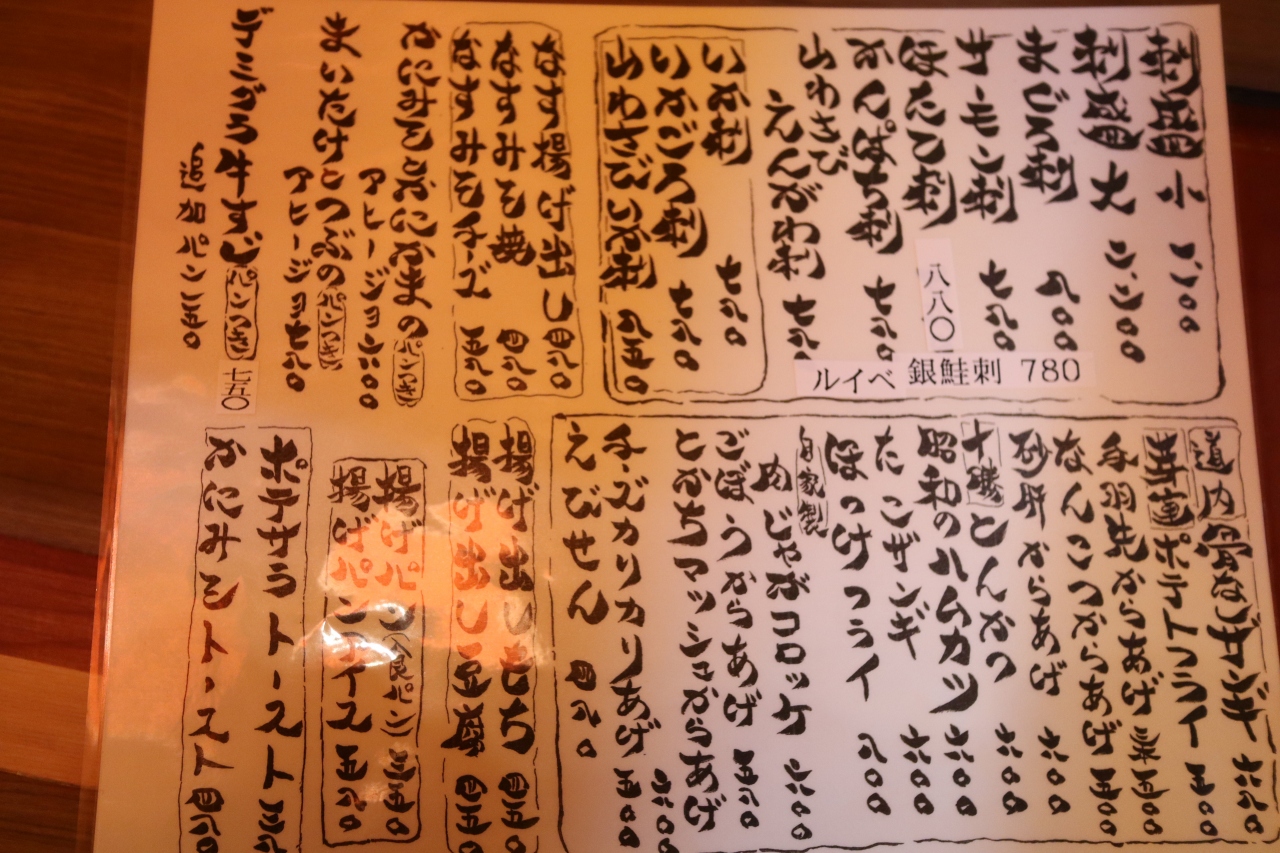 刺盛 小 一、一〇〇
刺盛 大 二、二〇〇
まぐろ刺 八〇〇
サーモン刺 七八〇
ほたて刺 八八〇
かんぱち刺 七八〇
山わさび
えんがわ刺 七八〇
ルイベ 銀鮭刺 780
いか刺 七八〇
いかごろ刺 七八〇
山わさびいか刺 八五〇
なす揚げ出し 四八〇
なすみそ焼 四八〇
なすみそチーズ 五八〇
かにみそとかにかまの パンつき
アヒージョ
まいたけとつぶの パンつき
アヒージョ 七八〇
デミグラ牛すじ パンつき 七五〇
追加パン 一五〇
道内 骨なしザンギ 六八〇
芽室 ポテトフライ 五〇〇
手羽先からあげ 三本 五〇〇
なんこつからあげ 五〇〇
砂肝からあげ 六〇〇
十勝 とんかつ 六〇〇
昭和のハムカツ 六〇〇
たこザンギ 六〇〇
ほっけフライ 八〇〇
自家製
肉じゃがコロッケ 六〇〇
ごぼうからあげ 五八〇
とかちマッシュからあげ 六八〇
チーズカリカリあげ 五〇〇
えびせん 四八〇
揚げ出しもち 四五〇
揚げ出し豆腐 四五〇
揚げパン(食パン) 三五〇
揚げパンアイス 五八〇
ポテサラトースト
かにみそトースト 四八〇